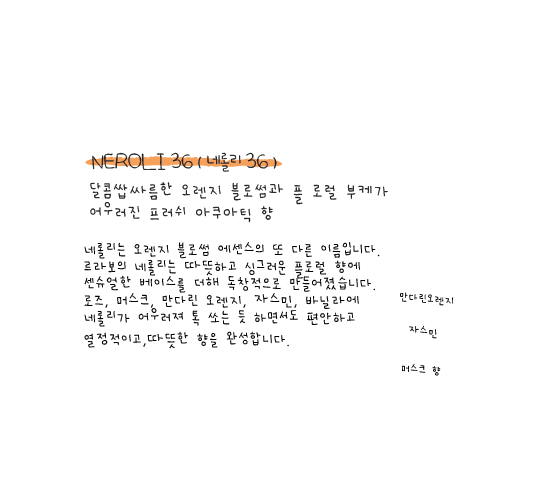 NEROLI 36 ( 네롤리 36 )
달콤쌉싸름한 오렌지 블로썸과 플로럴 부케가
어우러진 프러쉬 아쿠아틱 향
네롤리는 오렌지 블로썸 에센스의 또 다른 이름입니다.
르라보의 네롤리는 따뜻하고 싱그러운 플로럴 향에
센슈얼한 베이스를 더해 독창적으로 만들어졌습니다.
로즈, 머스크, 만다린 오렌지, 자스민, 바닐라에
네롤리가 어우러져 톡 쏘는 듯 하면서도 편안하고
열정적이고,따뜻한 향을 완성합니다.
만다린오렌지
자스민
머스크 향